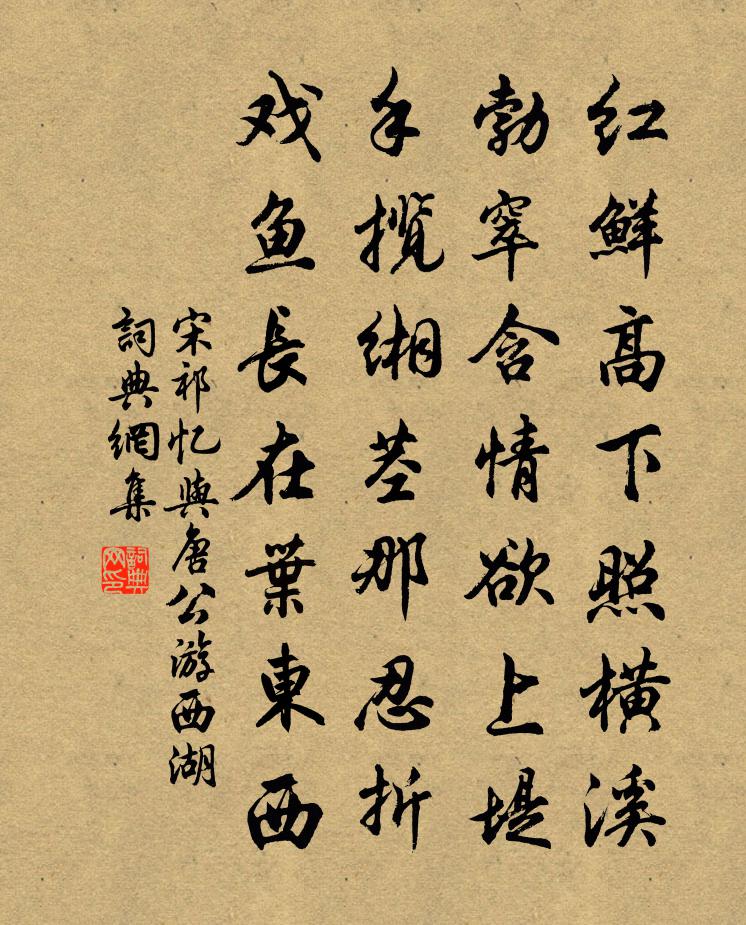 红鲜高下照横溪
勃窣含情欲上堤
手揽缃茎那忍折
戏鱼長在葉東西
宋祁忆與唐公游西湖
詞典網集
詞典网印